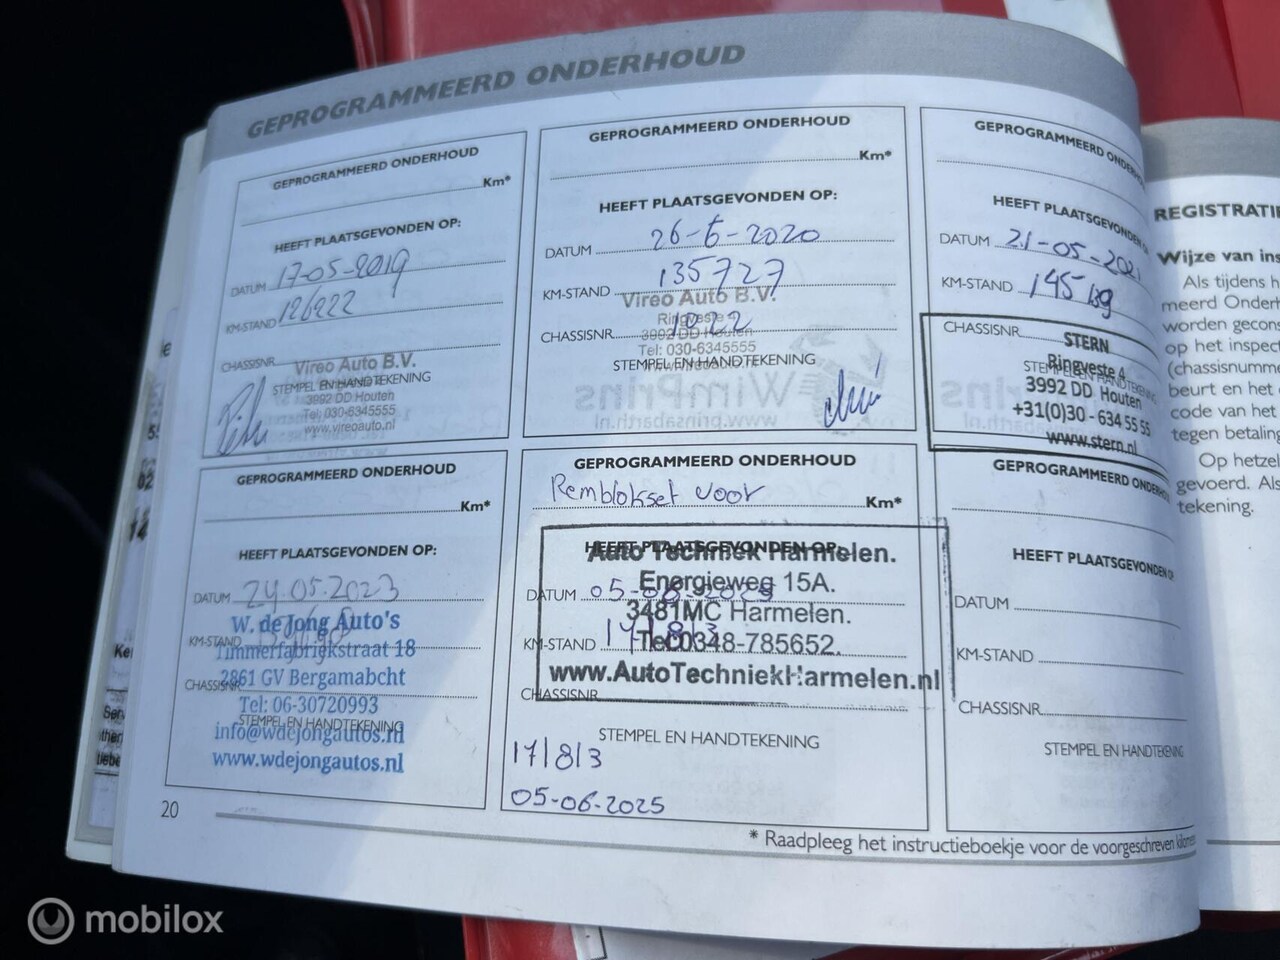 GEPROGRAMMEERD ONDERHOUD
GEPROGRAMMEERD ONDERHOUD
Km*
HEEFT PLAATSGEVONDEN OP:
DATUM 17-05-2019
KM-STAND 126922
CHASSISNR.
Vireo Auto B.V.
STEMPEL EN HANDTEKENING
3992 DD Houten
Tel: 030-6345555
www.vireoauto.nl
GEPROGRAMMEERD ONDERHOUD
Km*
HEEFT PLAATSGEVONDEN OP:
DATUM 26-6-2020
KM-STAND 135727
Vireo Auto B.V.
Ringveste 4
CHASSISNR. 1822
3992 DD Houten
Tel: 030-6345555
STEMPEL EN HANDTEKENING
WimPrins
www.prinsabarth.nl
GEPROGRAMMEERD ONDERHOUD
HEEFT PLAATSGEVONDEN
DATUM 21-05-2021
KM-STAND 145 139
CHASSISNR.
STERN
Ringveste 4
STEMPEL EN HANDTEKENING
3992 DD Houten
+31(0)30 - 634 55 55
www.stern.nl
GEPROGRAMMEERD ONDERHOUD
Km*
HEEFT PLAATSGEVONDEN OP:
DATUM 24.05.2023
W. de Jong Auto's
KM-STAND
Timmerfabriekstraat 18
2861 GV Bergamabcht
CHASSISNR.
Tel: 06-30720993
STEMPEL EN HANDTEKENING
info@wdejongautos.nl
www.wdejongautos.nl
GEPROGRAMMEERD ONDERHOUD
Remblokset voor
Km*
HEEFT PLAATSGEVONDEN OP:
Auto Techniek Harmelen.
Energieweg 15A.
DATUM 05-06-2025
3481MC Harmelen.
KM-STAND 171813
Tel:0348-785652.
www.AutoTechniekHarmelen.nl
CHASSISNR.
STEMPEL EN HANDTEKENING
171813
05-06-2025
GEPROGRAMMEERD ONDERHOUD
HEEFT PLAATSGEVONDEN OP
DATUM
KM-STAND
CHASSISNR.
STEMPEL EN HANDTEKENING
20
* Raadpleeg het instructieboekje voor de voorgeschreven
REGISTRATI
Wijze van ins
Als tijdens h
meerd Onderh
worden gecons
op het inspect
(chassisnumme
beurt en het
code van het
tegen betaling
Op hetzel
gevoerd. Als
tekening.
mobilox